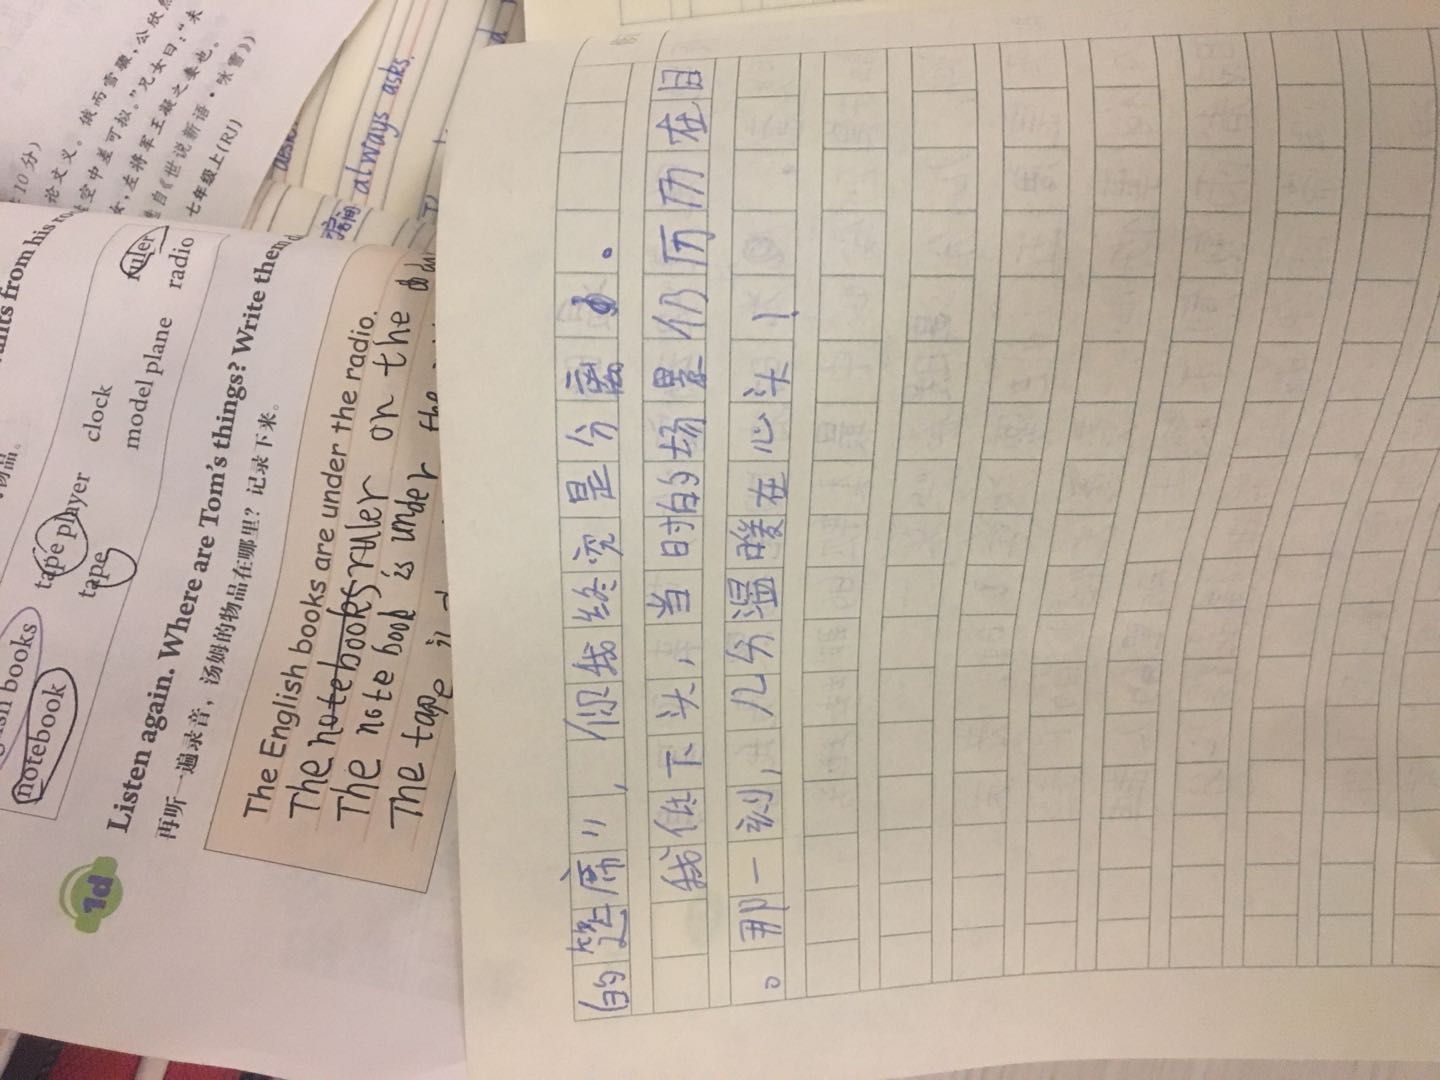 的筵席”，你我终究是分离。
我低下头，当时的场景仍历历在目
。那一刻，几分温暖在心头！
10分）
论文义。俄而雪骤，公欣然
空中差可拟。”兄女曰：“未
左将军王凝之妻也。
自《世说新语·咏雪》）
七年级上(RJ)
always asks.
notebook
books
tape player
tape
clock
model plane
ruler
radio
1d
Listen again. Where are Tom's things? Write them
再听一遍录音，汤姆的物品在哪里？记录下来。
The English books are under the radio.
The notebooks ruler on the
The note book is under the
The tape